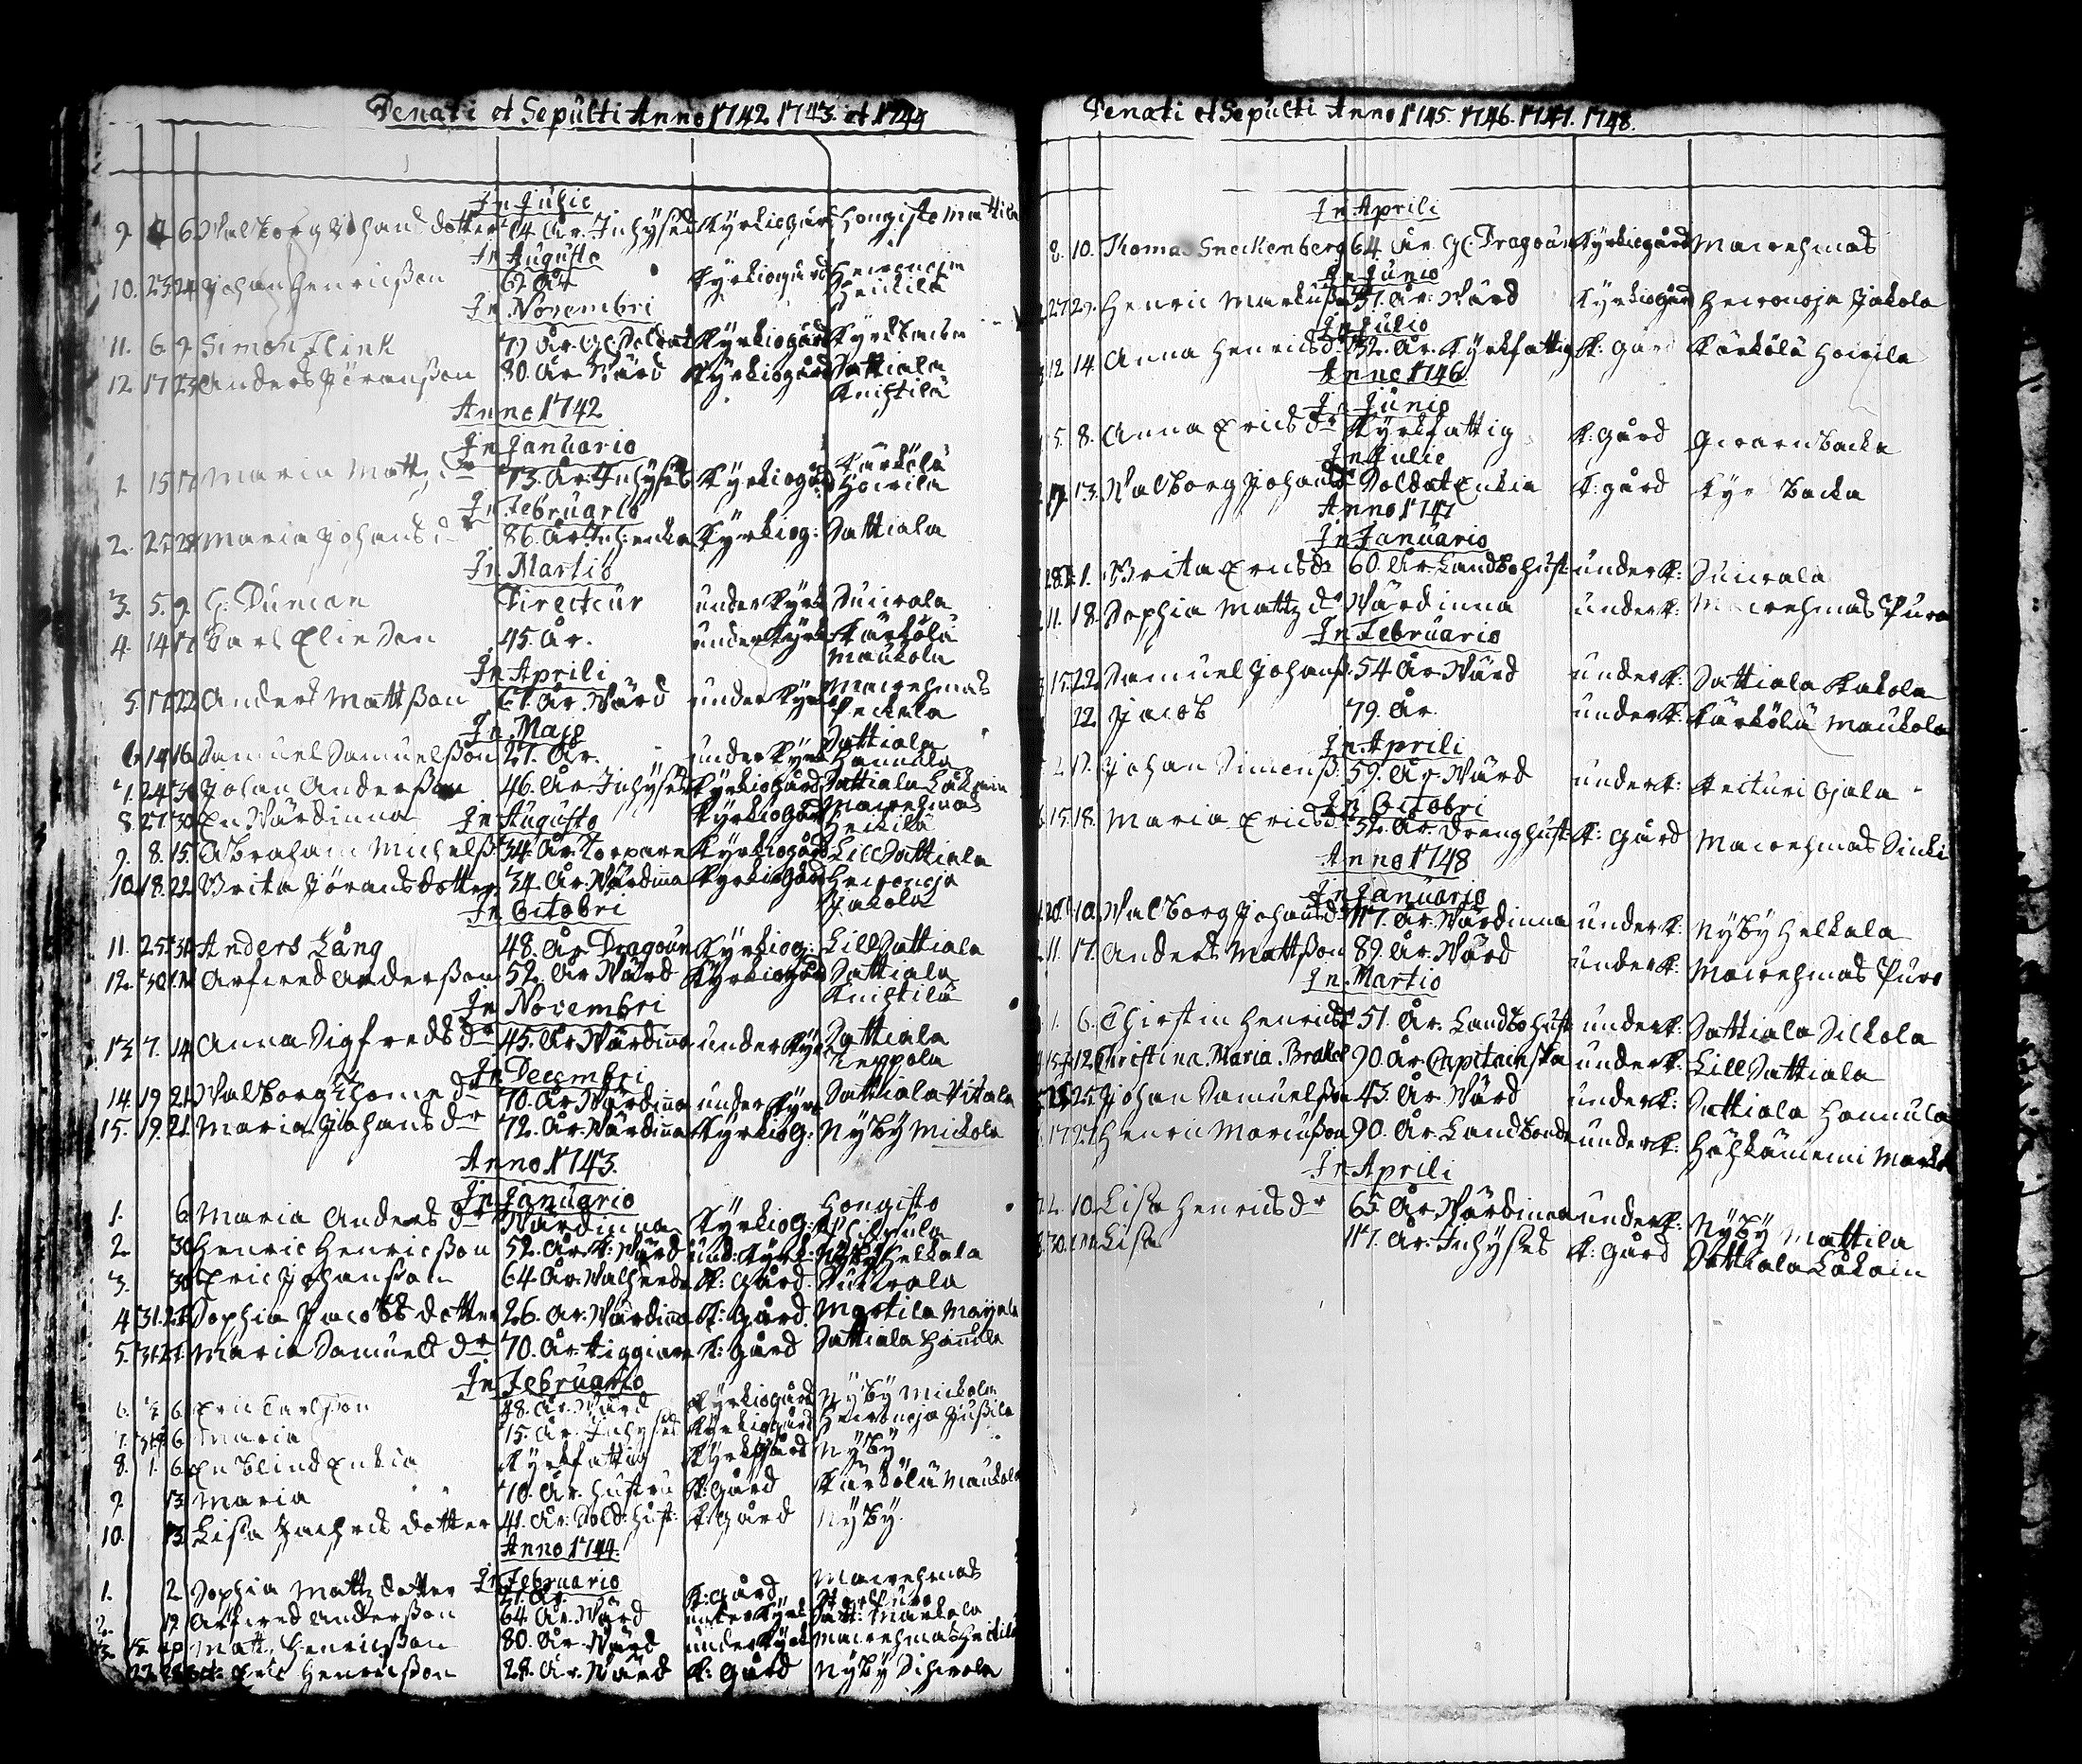 Denati et Sepulti Anno 1742. 1743. et 1744
In Julio
9. 6. Walborg Johans dotter 74. År. Inhyses Kyrkiogård Hongisto Mattila
In Augusto
10. 23 24 Johan Henricsson 62 År Kyrkiogård Heironoja Heikilä
In Novembri
11. 6. 9. Simon Flink 77 År. Gl. Soldat Kyrkiogård Kyrkbacka
12. 17 23 Anders Jöransson 80. År Wärd Kyrkiogård Sattiala Knistilä
Anno 1742
In Januario
1. 15 17 Maria Matts dr 73. År. Inhyses Kyrkiogård Kärkölä Hoivila
In Februario
2. 25 28 Maria Johans dr 86. År. Inh: enkia Kyrkiog: Sattiala
In Martio
3. 5. 9. Duncan Directeur under Kyrk Suinala
4. 14 17 Carl Elieson 45. År. under Kyrk Kärkölä Maukola
In Aprili
5. 17 22 Anders Mattsson 67. År. Wärd under Kyrk Mairehmas
In Majo
6. 14 16 Samuel Samuelsson 27. År. under Kyrk Sattiala Hannula
7. 24 30 Johan Andersson 46. År Inhyses Kyrkiogård Sattiala Låkoin
8. 27 30 En Wärdinna Kyrkiogård Mairehmas Heikilä
In Augusto
9. 8. 15. Abraham Michelss 34. År. Torpare Kyrkiogård Lill Sattiala
10. 18. 22. Brita Jörans dotter 34. År. Wärdinna Kyrkiogård Heironoja Jakola
In Octobri
11. 25 30 Anders Lång 48. År Dragoun Kyrkiog: Lill Sattiala
12. 30 1.N Arfwed Andersson 52. År Wärd Kyrkiogård Sattiala Knistilä
In Novembri
13. 7. 14. Anna Sigfreds dr 45. År. Wärdinna under Kyrk Sattiala Teppola
In Decembri
14. 19 21 Walborg Thome dr 70. År Wärdinna under Kyrk Sattiala Vitala
15. 19. 21. Maria Johans dr 72. År. Wärdinna Kyrkiog: Nyby Mickola
Anno 1743.
In Januario
1. 6 Maria Anders dr Wärdinna Kyrkiog: Hongisto
2. 30 Henric Henricsson 52. År. K: Wärd und: Kyrk. Nyby Helkala
3. 30 Eric Johansson 64 År. K: Gård. Suinala
4 31. 2. Sophia Jacobs dotter 26. År. Wärdinna K: Gård. Martila
5. 31 2. Maria Samuels dr 70. År. tiggiare K: Gård Sattiala Hannula
In Februario
6. 2 6. Eric Carlsson 48. År. Wärd Kyrkiogård Nyby Mickola
7. 6 Maria 75. År. Inhyses Kyrkiogård Heironoja Jussila
8. 1. 6 En Blind Enkia Kyrkfattig Kyrkiogård Nyby
9 13 Maria 70. År. Hustru K: Gård Kärkölä Maukola
10. 13 Lisa Zachris dotter 41. År. Sold: Hust: K: Gård Nyby.
Anno 1744.
In Februario
1. 2 Sophia Matts dotter 21. År. K: Gård Mairehmas Puro
2. 19 Arfwed Andersson 64 År. Wärd under Kyrk Satt: Markola
3. Matts Henricsson 80. År. Wärd under Kyrk Mairehmas Heikilä
22 28 Eric Henricsson 28. År. Wärd K: Gård Nyby
Denati et Sepulti Anno 1745. 1746. 1747. 1748.
In Aprili
8. 10. Thomas Sneckenberg 64. År Gl: Dragoun Kyrkiogård Mairehmas
In Junio
27 29. Henric Markuss 37. År. Wärd Kyrkiogård Heironoja Jakola
In Julio
12 14 Anna Henrics dr 32. År. Kyrkfattig K: Gård Kärkölä Hoivila
Anno 1746
In Junio
5. 8. Anna Erics dr Kyrkfattig K: Gård Qvarnbacka
In Julio
13. Walborg Johans dr Soldat Enkia K: gård Kyr backa
Anno 1747
In Januario
28. 1. Brita Erics dr 60. År. Landbo hust: under K: Suinala
11. 18. Sophia Matts dr Wärdinna under K: Mairehmas Puro
In Februario
15. 22. Samuel Johanss. 54 År Wärd under K: Sattiala Kakola
22 Jacob 79. År. under K: Kärkölä Maukola
In Aprili
2. 17. Johan Simonss: 59. År. Wärd under K: Keituri Ojala
In Octobri
15. 18. Maria Erics dr 32. År. Dreng hust: K: Gård Mairehmas
Anno 1748
In Januario
10. Walborg Johans dr 77. År. Wärdinna under K: Nyby Helkala
11. 17. Anders Mattsson 89. År. Wärd under K: Mairehmas Puro
In Martio
1. 6. Chirstin Henrics dr 51. År. Landbo Hust under K: Sattiala Silkola
12 Christina. Maria. Brakel 90. År. Capitainska under K: Lill Sattiala
25 Johan Samuelsson 43. År. Wärd under K: Sattiala Hannula
17 27 Henric Marcusson 90. År. Landbonde under K:
In Aprili
10. Lisa Henrics dr 65. År. Wärdinna under K: Nyby Mattila
30. 1.M Lisa 77. År. Inhyses K: Gård Sattiala Låkoin